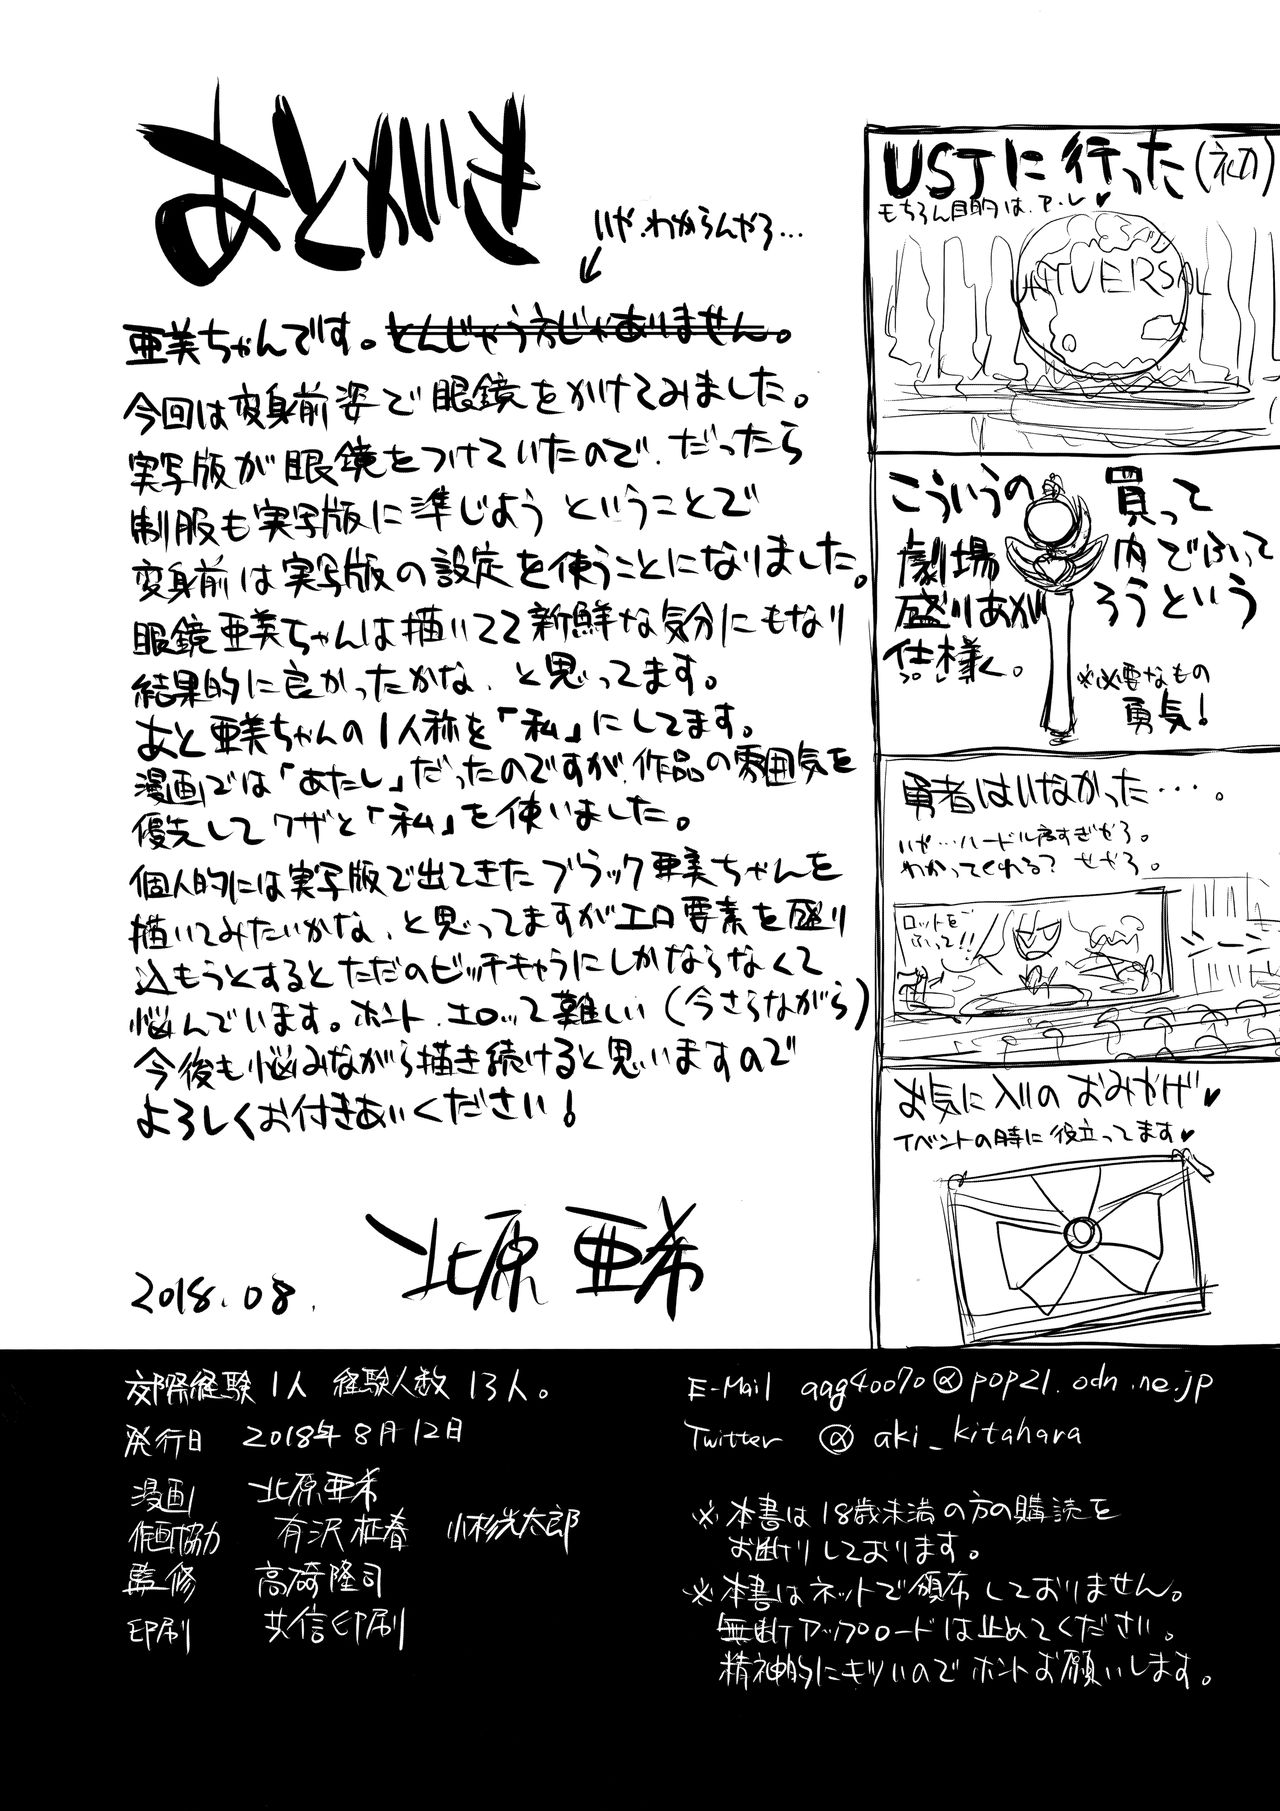 あとがき
いや、わからんやろ…
亜美ちゃんです。とんじゃう方じゃありません。
今回は変身前姿で眼鏡をかけてみました。
実写版が眼鏡をつけていたので、だったら
制服も実写版に準じよう ということで
変身前は実写版の設定を使うことになりました。
眼鏡亜美ちゃんは描いてて新鮮な気分にもなり
結果的に良かったかな、と思ってます。
あと亜美ちゃんの1人称を「私」にしてます。
漫画では「あたし」だったのですが、作品の雰囲気を
優先してワザと「私」を使いました。
個人的には実写版で出てきたブラック亜美ちゃんを
描いてみたいかな、と思ってますがエロ要素を盛り
込もうとするとただのビッチキャラにしかならなくて
悩んでいます。ホント、エロって難しい(今さらながら)
今後も悩みながら描き続けると思いますので
よろしくお付きあいください!
2018.08.
北原亜希
USJに行った(初)
もちろん目的は、ア・レ♥
UNIVERSAL
こういうの買って
劇場内でふって
盛りあがろうという
仕様。
※必要なもの
勇気!
勇者はいなかった…。
いや…ハードル高すぎやろ。
わかってくれる?せやろ。
ロットを
ふって!!
シーン
お気に入りのおみやげ♥
イベントの時に役立ってます♥
交際経験1人 経験人数13人。
発行日 2018年8月12日
漫画 北原亜希
作画協力 有沢柾春 小杉光太郎
監修 高崎隆司
印刷 共信印刷
E-Mail aag40070@pop21.odn.ne.jp
Twitter @aki_kitahara
※本書は18歳未満の方の購読を
お断りしております。
※本書はネットで頒布しておりません。
無断アップロードは止めてください。
精神的にキツいのでホントお願いします。